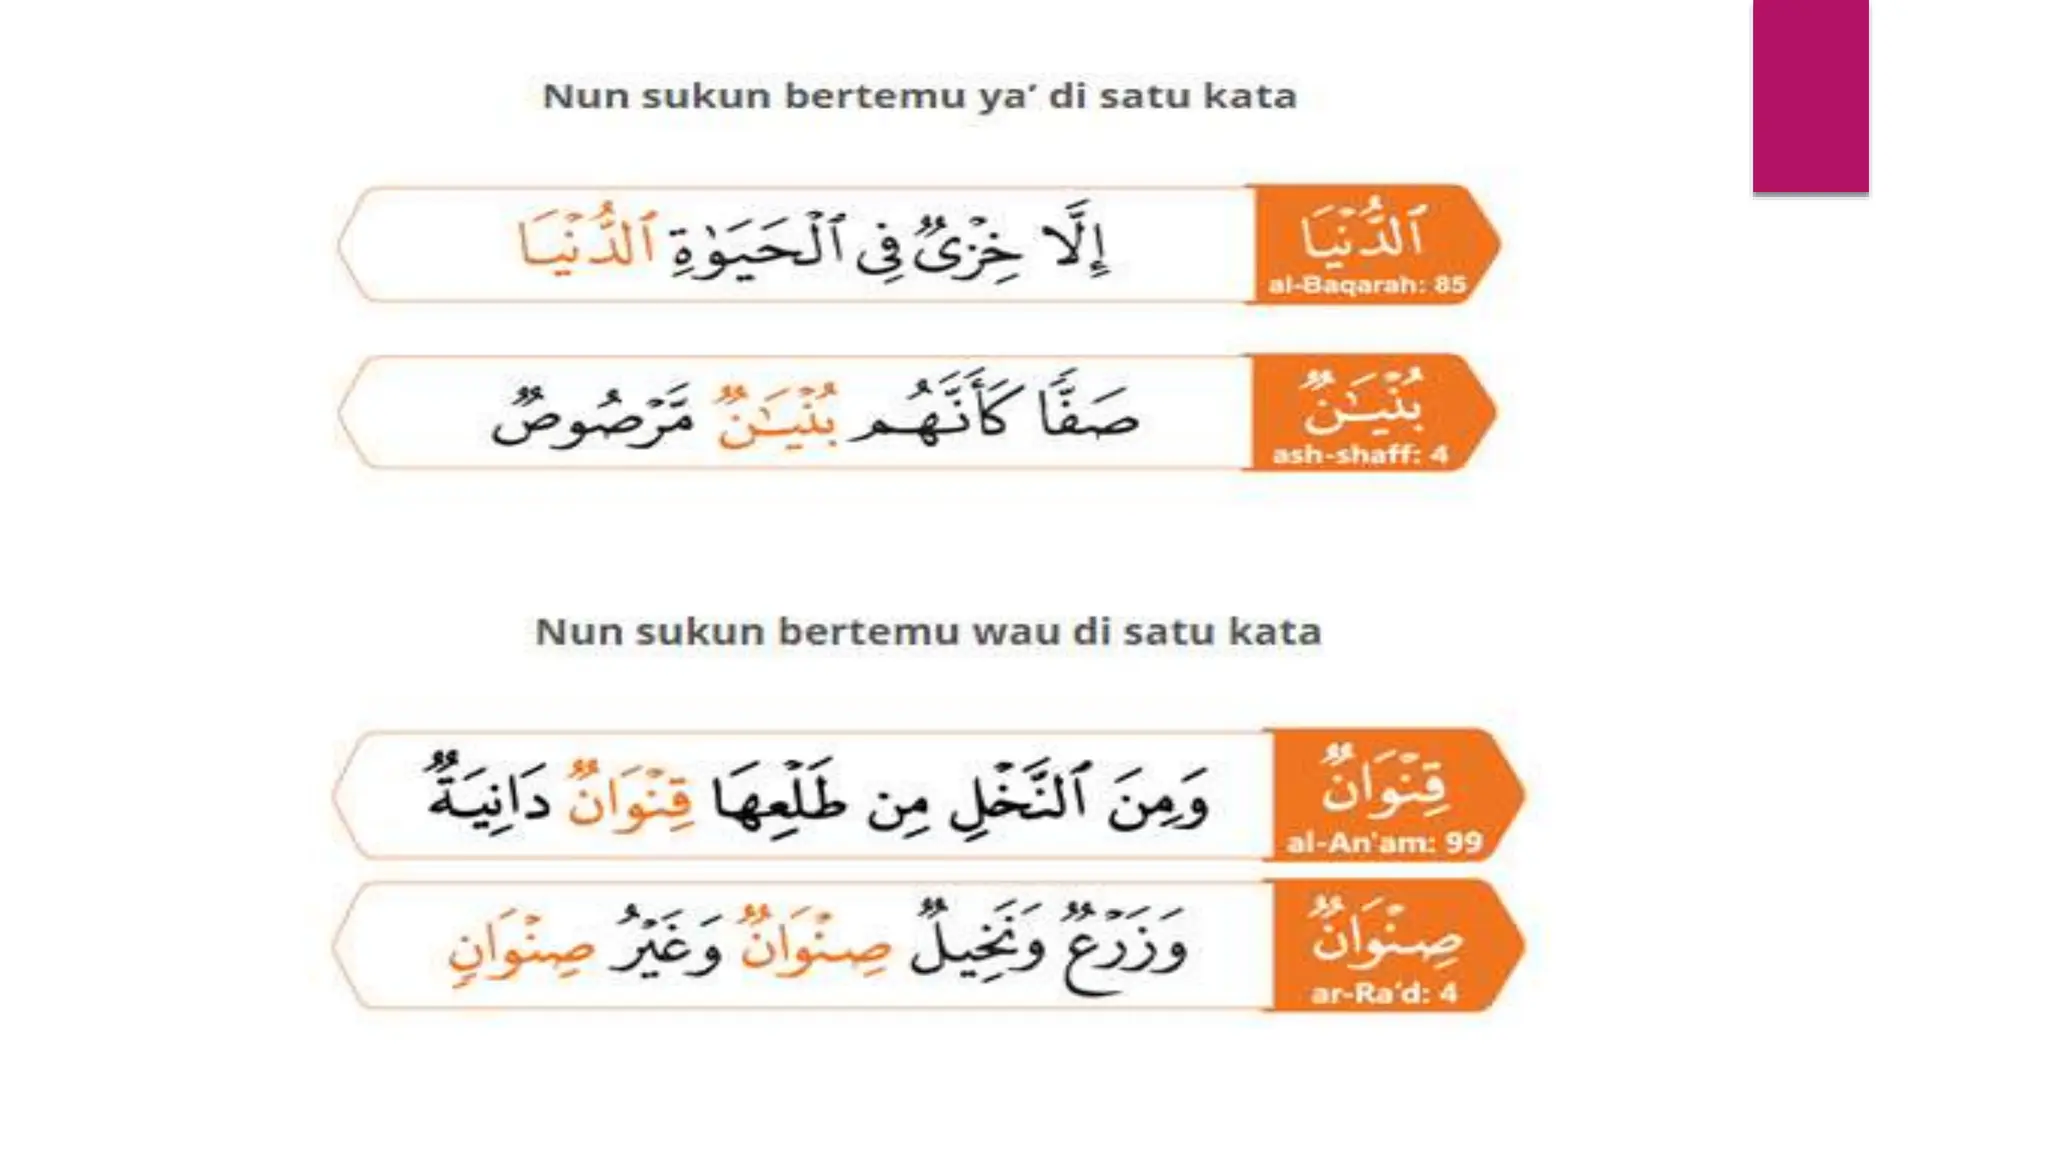 Nun sukun bertemu ya’ di satu kata
ٱلدُّنْيَا
al-Baqarah: 85
إِلَّا خِزْىٌ فِى ٱلْحَيَوٰةِ ٱلدُّنْيَا
بُنْيَـٰنٌ
ash-shaff: 4
صَفًّا كَأَنَّهُم بُنْيَـٰنٌ مَّرْصُوصٌ
Nun sukun bertemu wau di satu kata
قِنْوَانٌ
al-An'am: 99
وَمِنَ ٱلنَّخْلِ مِن طَلْعِهَا قِنْوَانٌ دَانِيَةٌ
صِنْوَانٌ
ar-Ra’d: 4
وَزَرْعٌ وَنَخِيلٌ صِنْوَانٌ وَغَيْرُ صِنْوَانٍ